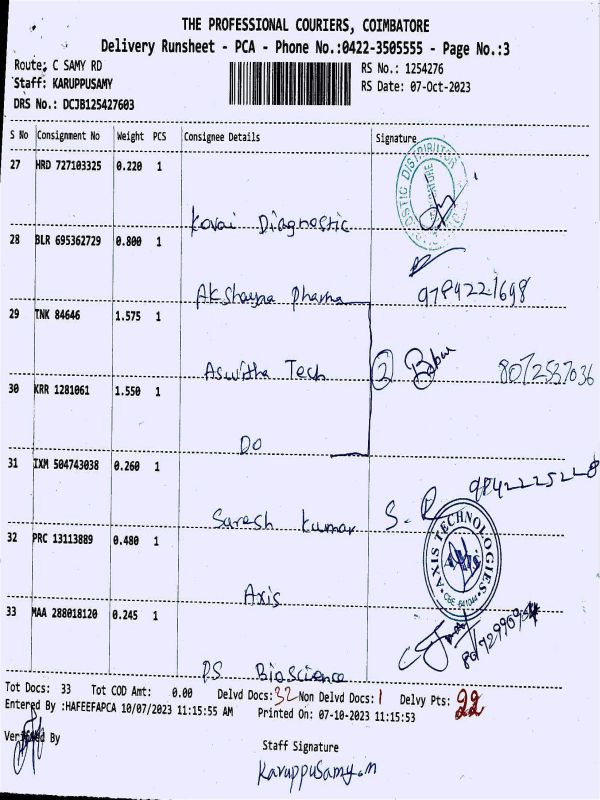 THE PROFESSIONAL COURIERS, COIMBATORE
Delivery Runsheet - PCA - Phone No.:0422-3505555 - Page No.:3
Route: C SAMY RD
RS No.: 1254276
Staff: KARUPPUSAMY
RS Date: 07-Oct-2023
DRS No.: DCJB125427603
S No Consignment No Weight PCS Consignee Details Signature
27 HRD 727103325 0.220 1
Kovai Diagnostic
28 BLR 695362729 0.800 1
Akshayaa Pharma 9789221698
29 TNK 84646 1.575 1
Aswitha Tech 2 Babu 8072537036
30 KRR 1281061 1.550 1
DO
31 IXM 504743038 0.260 1
Suresh Kumar S. R 9842225228
32 PRC 13113889 0.480 1
AXIS TECHNOLOGIES
AXIS
CBE
Axis
33 MAA 288018120 0.245 1
PS BioScience
Tot Docs: 33 Tot COD Amt: 0.00 Delvd Docs: 32 Non Delvd Docs: 1 Delvy Pts: 22
Entered By :HAFEEFAPCA 10/07/2023 11:15:55 AM Printed On: 07-10-2023 11:15:53
Verified By
Staff Signature
Karuppusamy.m